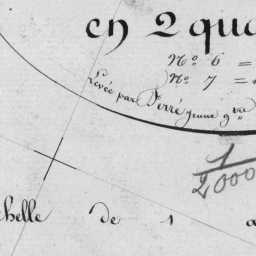 en 2 qua
Nº 6 =
Nº 7 =
Levée par Ferré jeune gre
1/2000
chelle de 1 a